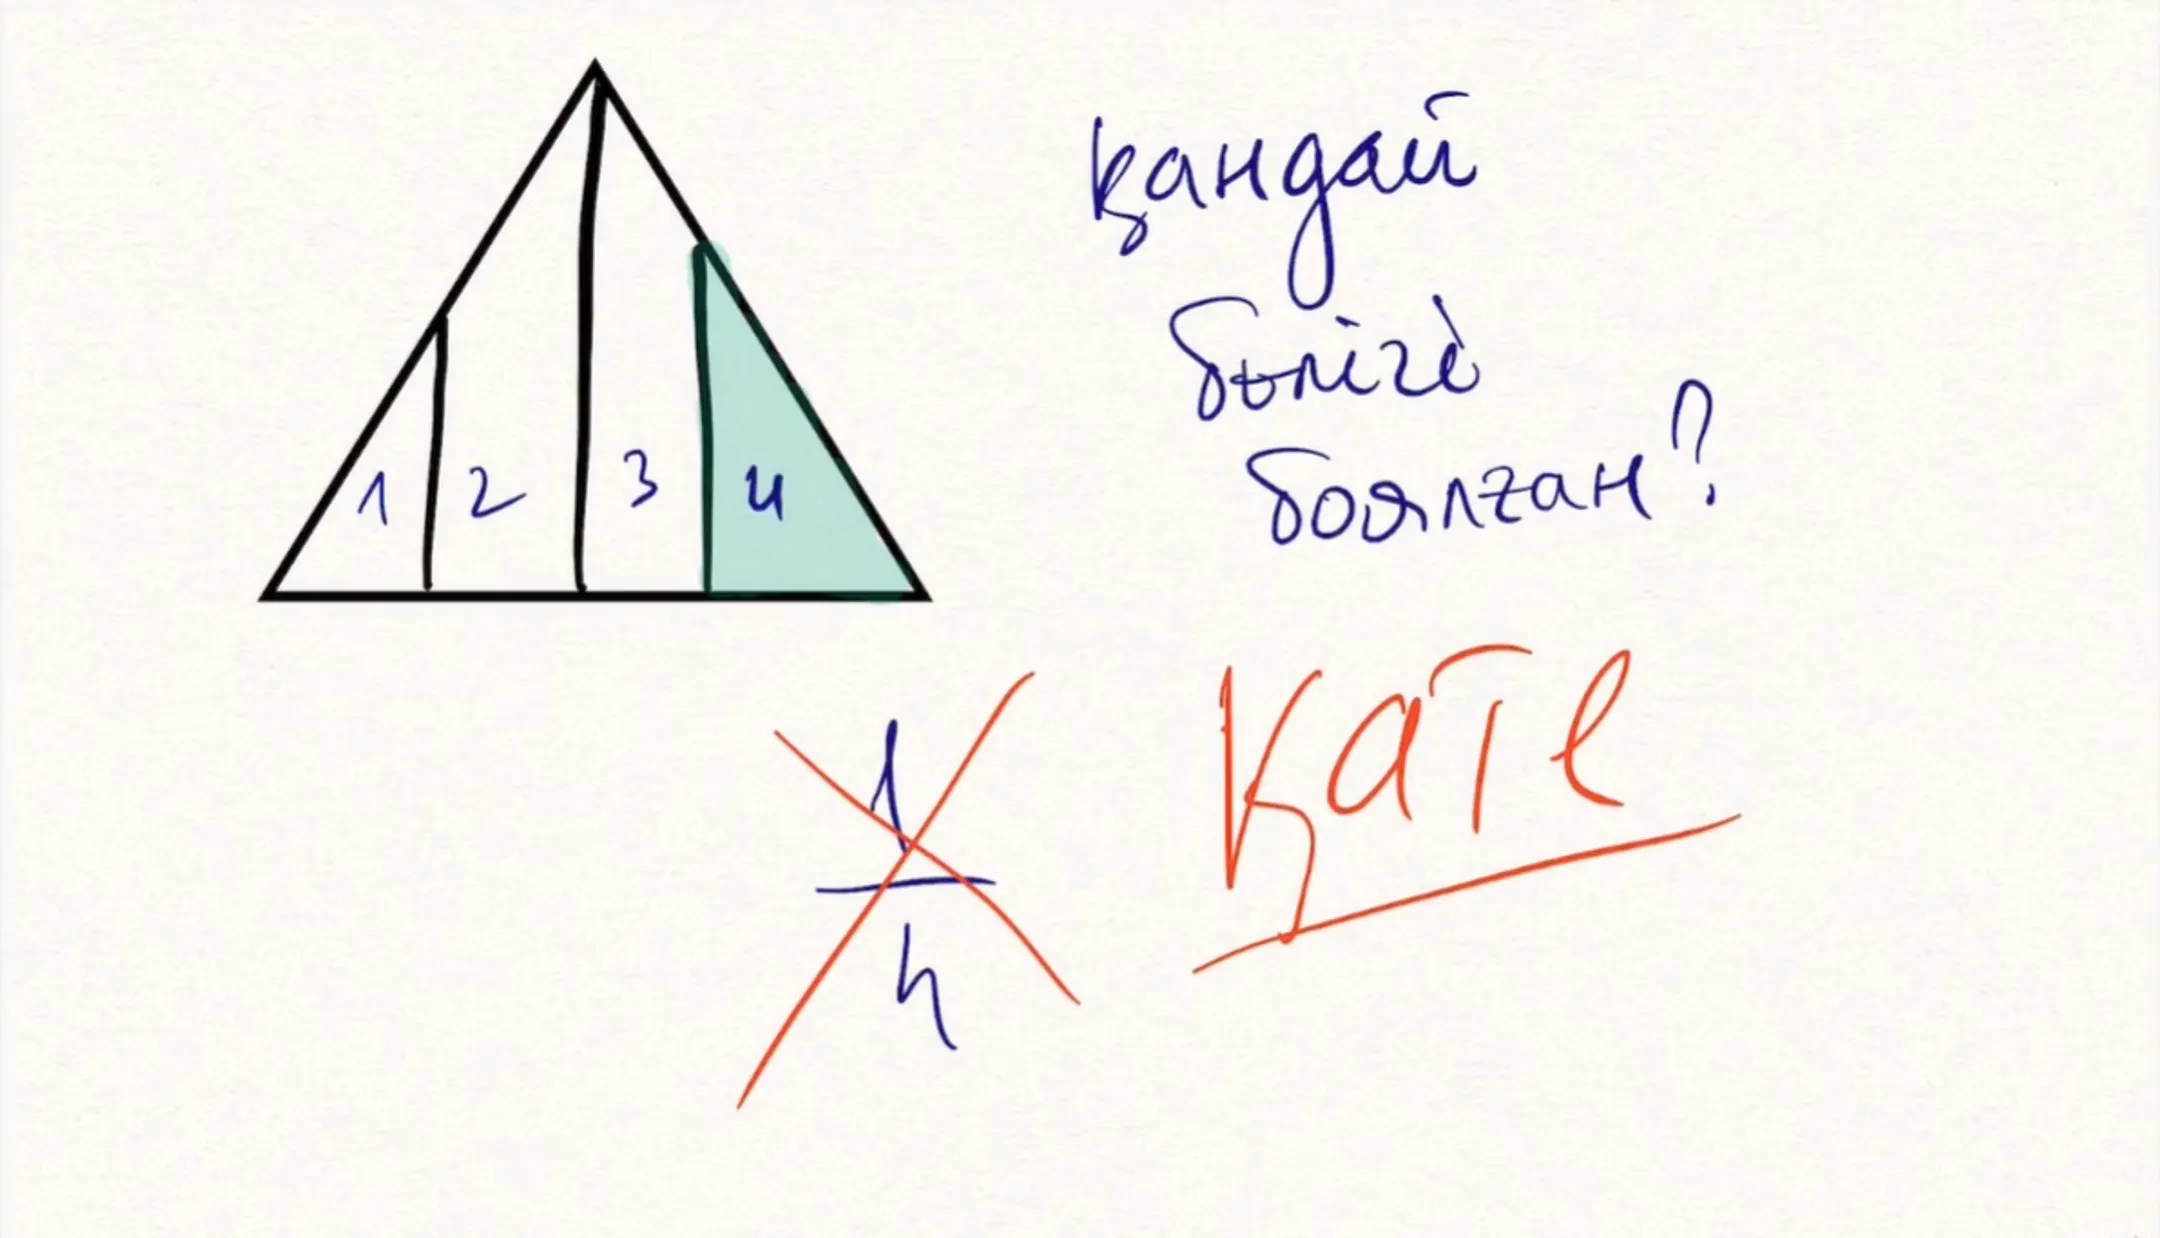 қандай
бөлігі
боялған?
1 2 3 4
1
4
Қате